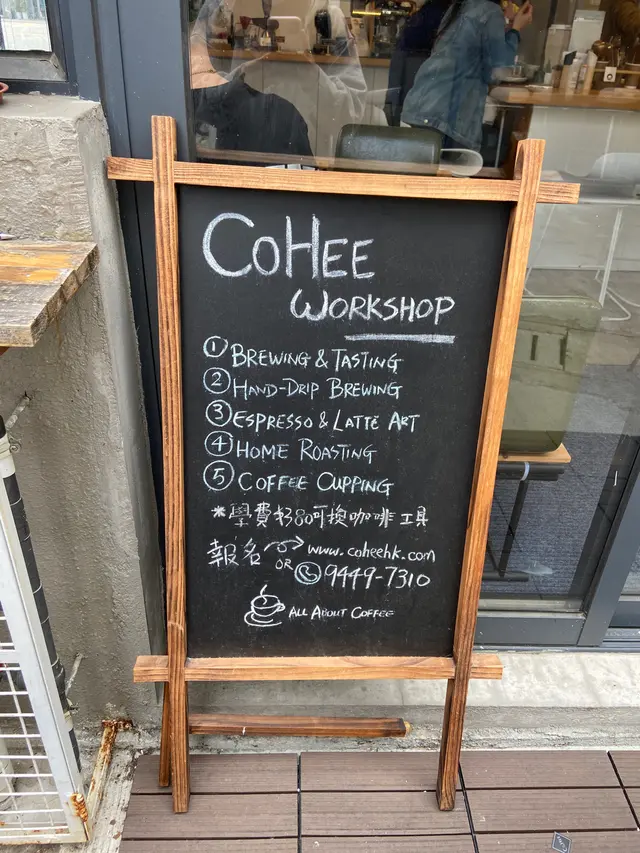 COHEE
WORKSHOP
① BREWING & TASTING
② HAND-DRIP BREWING
③ ESPRESSO & LATTE ART
④ HOME ROASTING
⑤ COFFEE CUPPING
*學費 80可換咖啡工具
報名 www.coheehk.com
OR 9449-7310
ALL ABOUT COFFEE